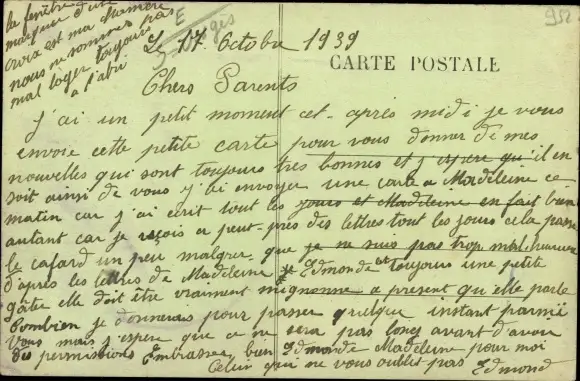 la fenêtre
marquée d'une
croix est ma chambre
nous ne sommes pas
mal loger toujours
a l'abri
E
Vosges
952
Le 17 Octobre 1939
CARTE POSTALE
Chers Parents
J'ai un petit moment cet-après midi je vous
envoie cette petite carte pour vous donner de mes
nouvelles qui sont toujours très bonnes et j'espère qu'il en
soit ainsi de vous j'bi envoyer une carte a Madeleine ce
matin car j'ai écrit tout les jours et Madeleine en fait bien
autant car je reçois a peut-près des lettres tout les jours cela passe
le cafard un peu malgrer que je ne suis pas trop mal
d'après les lettres de Madeleine Edmonde est toujours une petite
gâtée elle doit être vraiment mignonne a présent qu'elle parle
Combien je donnerais pour passer quelque instant parmi
vous mais j'espère que ce ne sera pas long avant d'avoir
des permissions Embrassez bien Edmonde Madeleine pour moi
Celui qui ne vous oublit pas Edmond